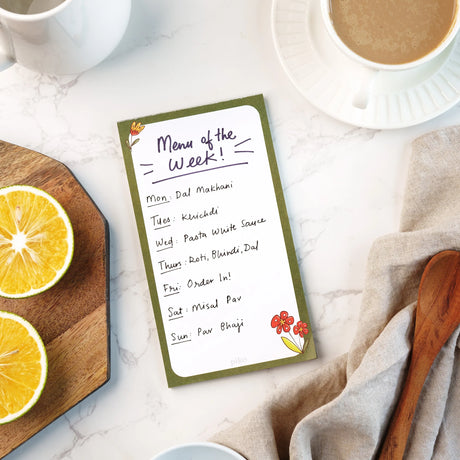 Menu of the
Week!
Mon: Dal Makhani
Tues: Khichdi
Wed: Pasta White Sauce
Thurs: Roti, Bhindi, Dal
Fri: Order In!
Sat: Misal Pav
Sun: Pav Bhaji